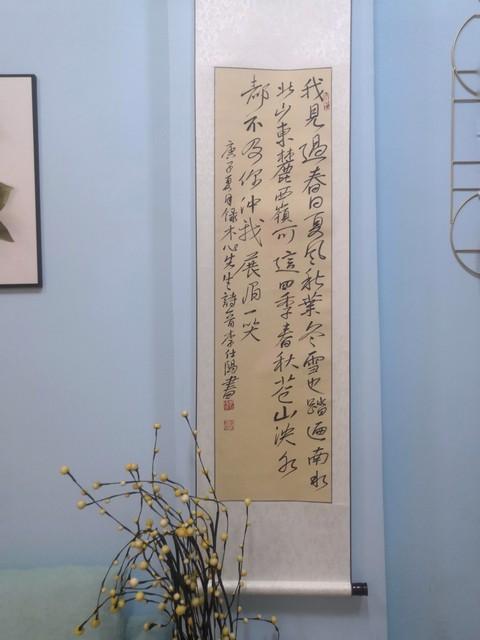 我見過春日夏风秋葉冬雪也踏遍南水
北山東麓西嶺可這四季春秋苍山泱水
都不及你冲我展眉一笑
庚子夏月録木心先生詩一首李仕陽書